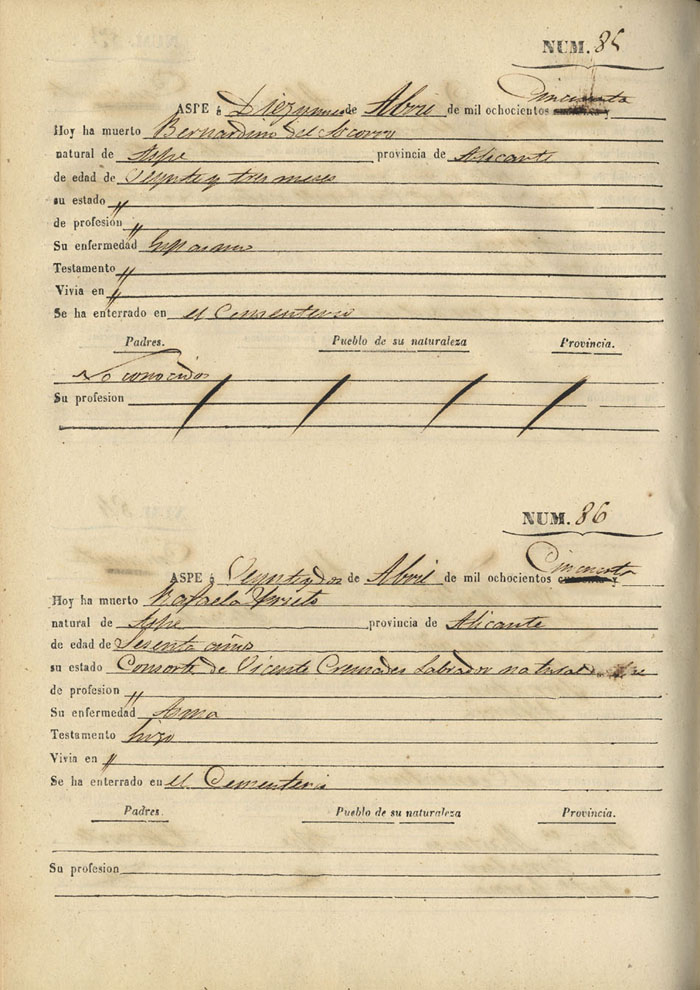 NUM. 85
ASPE á Diez y nueve de Abril de mil ochocientos Cincuenta
Hoy ha muerto Bernardino del Socorro
natural de Aspe provincia de Alicante
de edad de Veynte y tres meses
su estado "
de profesion "
Su enfermedad
Testamento "
Vivia en "
Se ha enterrado en el Cementerio
Padres. Pueblo de su naturaleza Provincia.
No conocidos
Su profesion
NUM. 86
ASPE á Veynte y dos de Abril de mil ochocientos Cincuenta
Hoy ha muerto Rafaela Prieto
natural de Aspe provincia de Alicante
de edad de Sesenta años
su estado Consorte de Vicente Cremades Labrador natural de
de profesion "
Su enfermedad Asma
Testamento hizo
Vivia en "
Se ha enterrado en el Cementerio
Padres. Pueblo de su naturaleza Provincia.
Su profesion